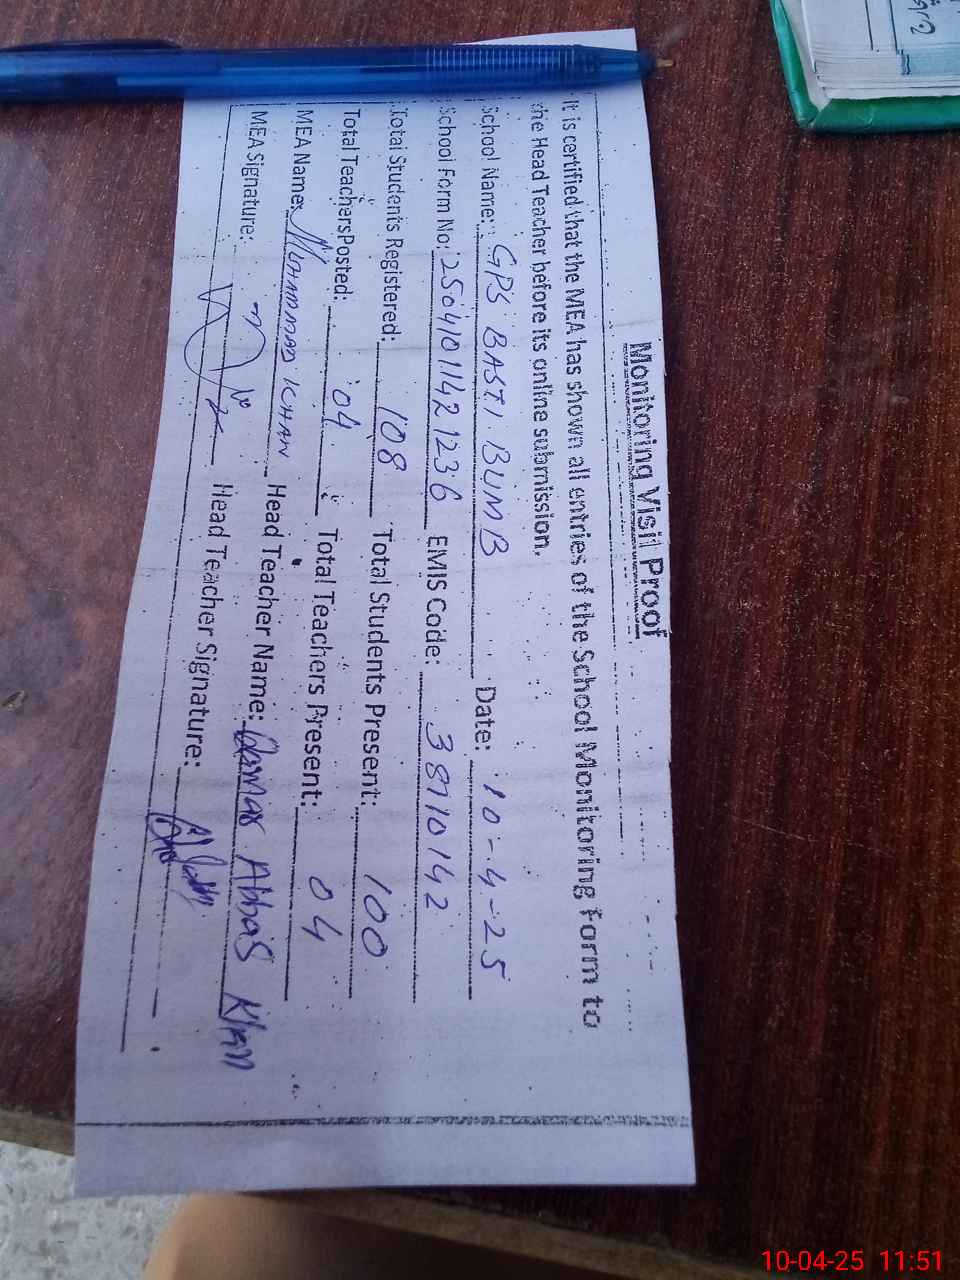 Monitoring Visit Proof
It is certified that the MEA has shown all entries of the School Monitoring Form to
the Head Teacher before its online submission.
School Name: GPS BASTI BUMB Date: 10-4-25
School Form No: 25041011421236 EMIS Code: 38110142
Total Students Registered: 108 Total Students Present: 100
Total Teachers Posted: 04 Total Teachers Present: 04
MEA Name: MUHAMMAD KHAN Head Teacher Name: Qamar Abbas Khan
MEA Signature: Head Teacher Signature:
10-04-25 11:51